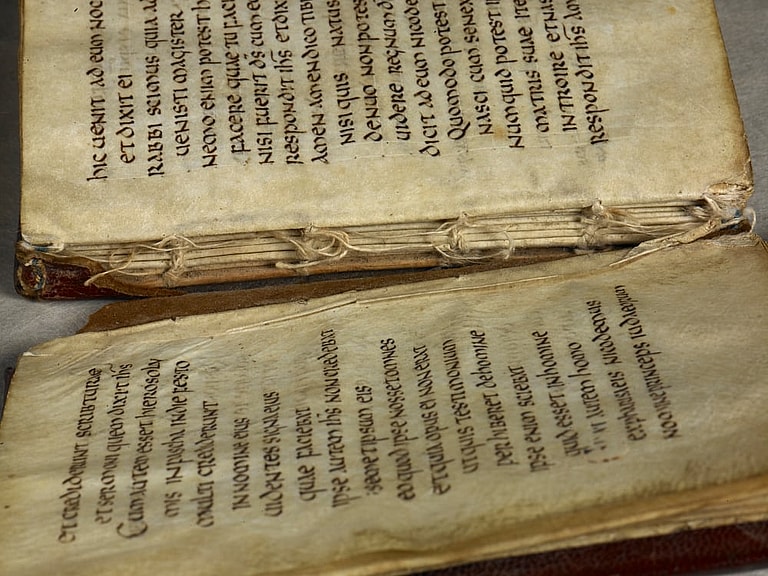 et crediderunt scribturae
et sermoni quem dixit ihs
Cum autem esset hierosoly
mis in pascha in die festo
multi crediderunt
in nomine eius
uidentes signa eius
quae faciebat
ipse autem ihs non credebat
semetipsum eis
eo quod ipse nosset omnes
et quia opus ei non erat
ut quis testimonium
perhiberet de homine
ipse enim sciebat
quid esset in homine
autem homo
ex pharisaeis nicodemus
nomine princeps iudaeorum
hic uenit ad eum noc
et dixit ei
rabbi scimus quia a
uenisti magister
nemo enim potest h
facere quae tu faci
nisi fuerit ds cum eo
respondit ihs et dixi
amen amen dico tibi
nisi quis natus
denuo non potes
uidere regnum d
dicit ad eum nicode
Quomodo potest
nasci cum senex
numquid potest i
matris suae ite
introire et nas
respondit ihs ame